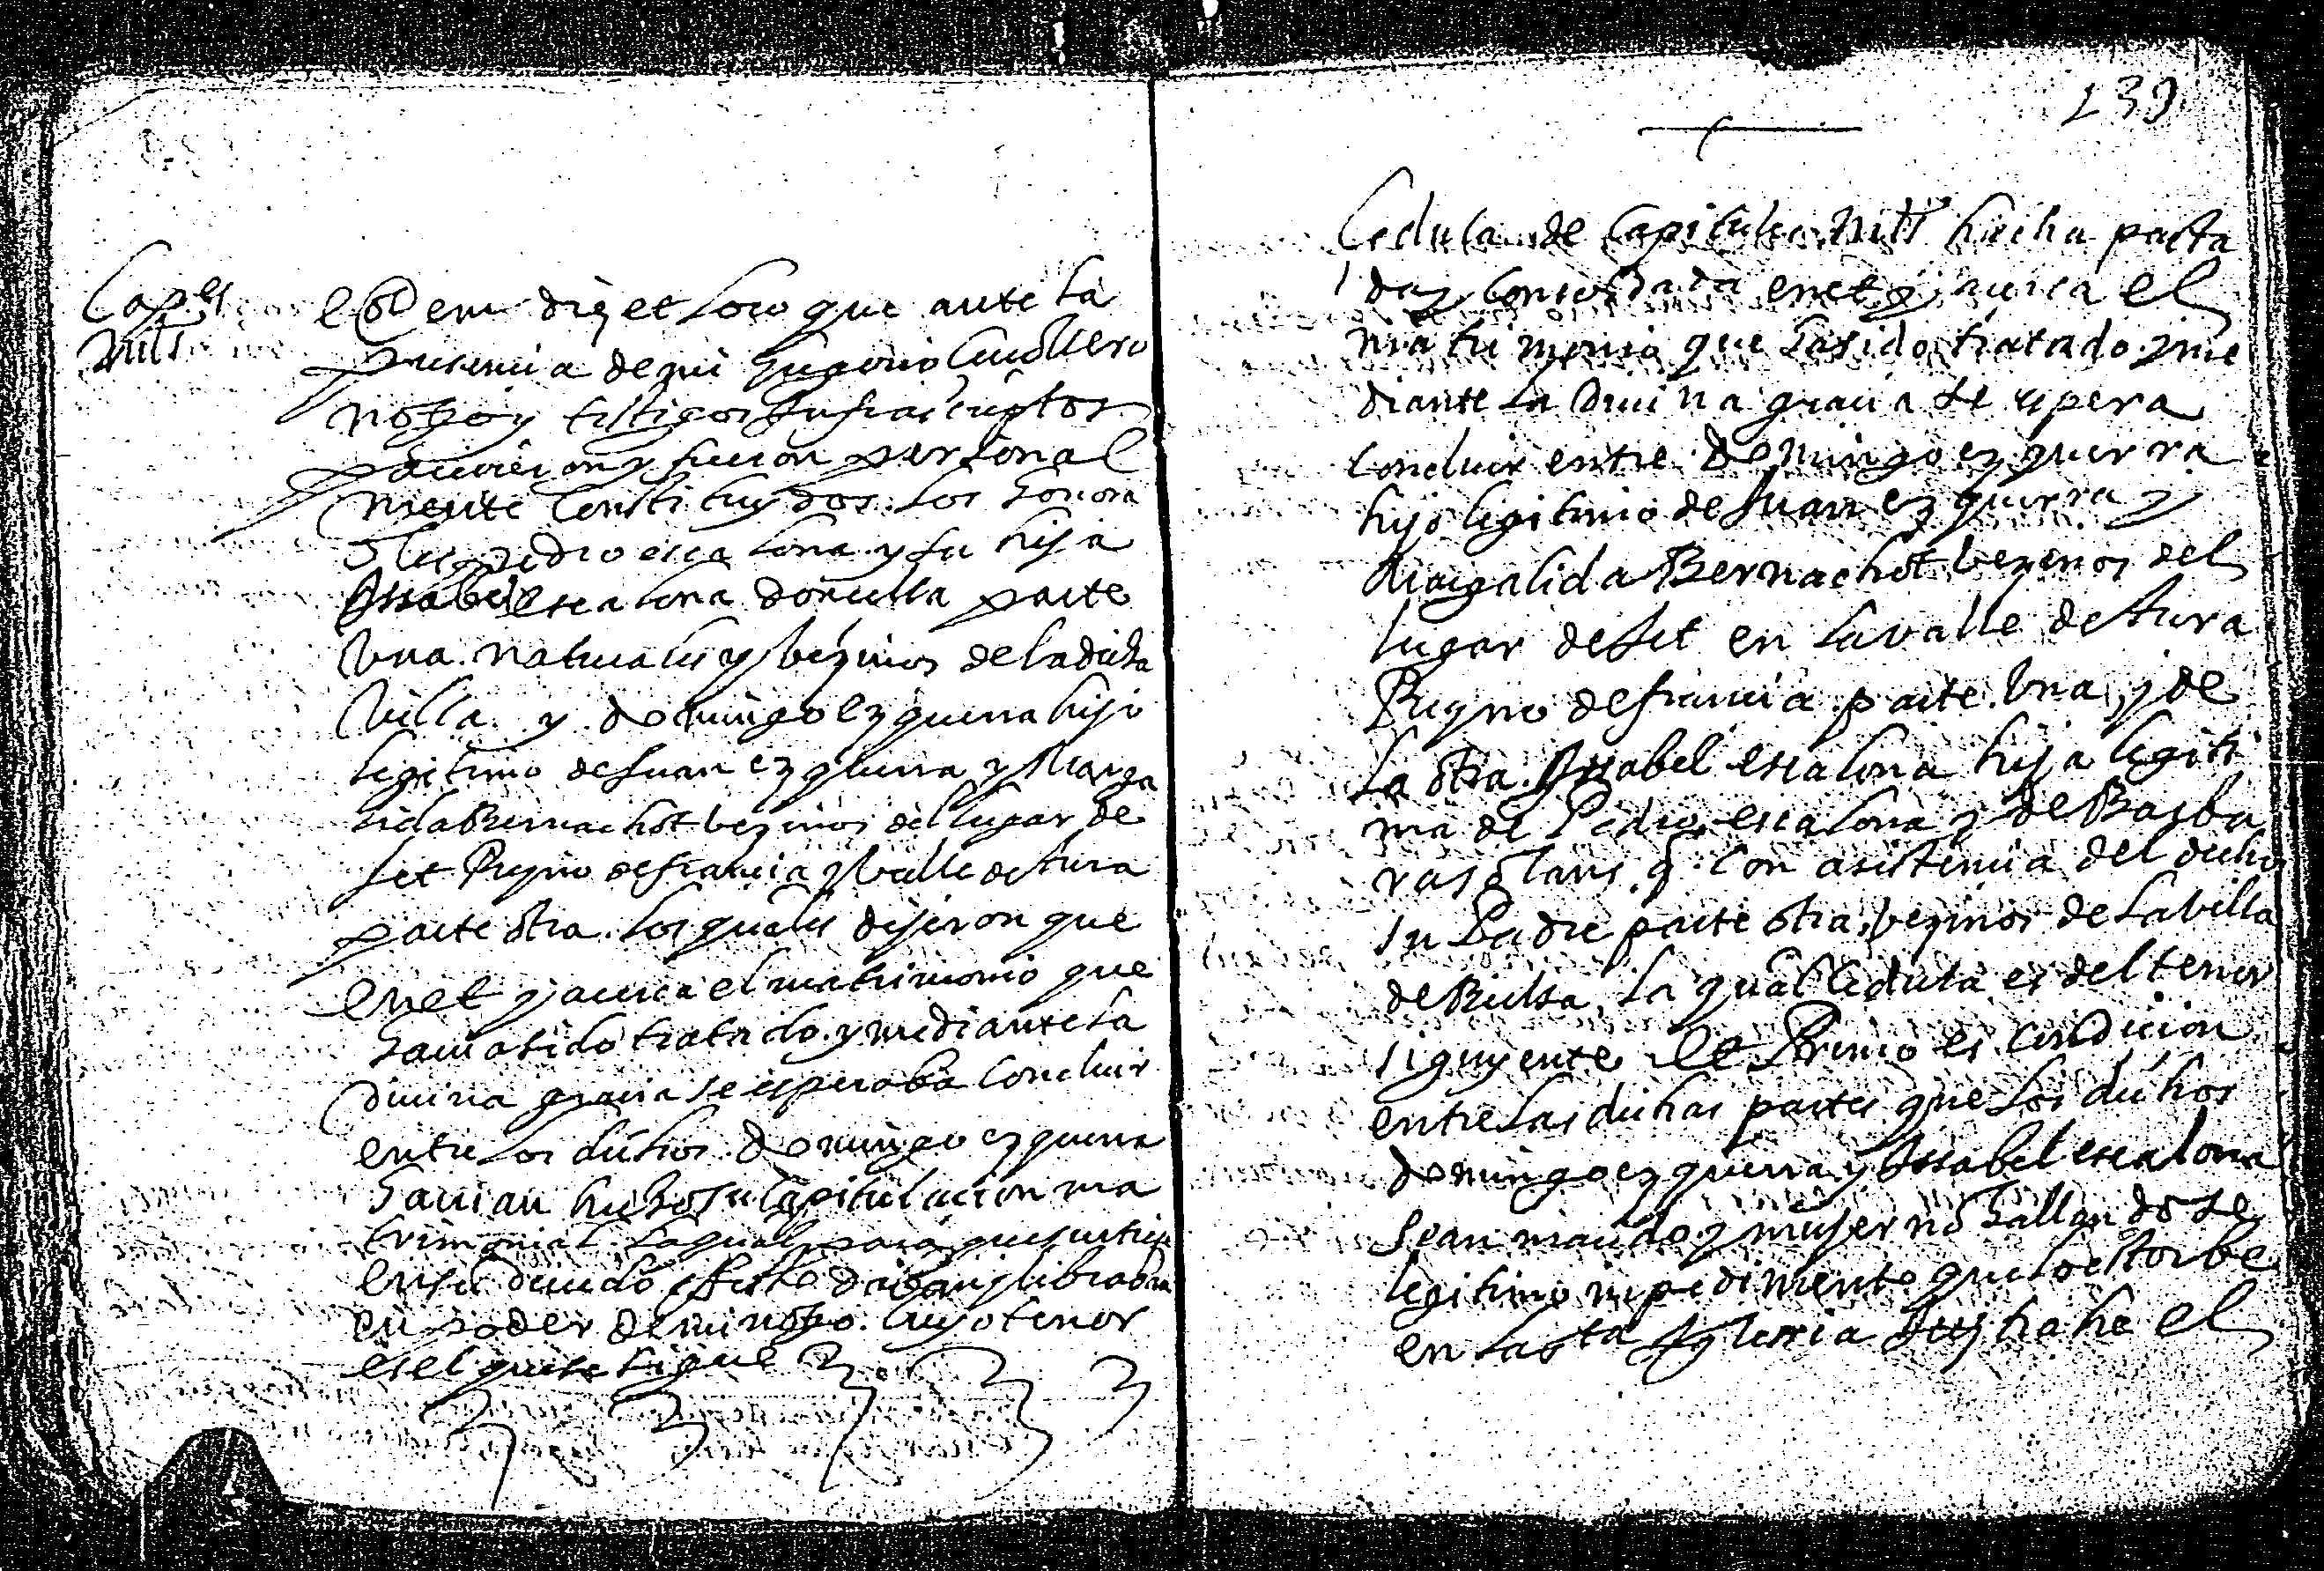 Cap.es
Mats
eodem die et loco que ante la
presencia de mi
noto y testigos infrascriptos
parecieron y fueron personal
mente constituydos los honora
bles pedro escalona y su hija
Issabel escalona doncella parte
Vna naturales y vezinos de la dicha
Villa y domingo ezquerra hijo
legitimo de Juan ezquerra y Marga
lida Bernachot vezinos del lugar de
Set Reyno de francia y valle de Aura
parte otra los quales dijeron que
en et y acerca el matrimonio que
hauia sido tratado y mediante la
diuina gracia se esperaba concluir
entre los dichos domingo ezquerra
hauian hecho su capitulacion ma
trimonial la qual para que surtiese
en su deuido effecto daban y libraban
en poder de mi noto. cuyo tenor
es el que se sigue
139
Cedula de Capitules Mats hecha pacta
da y concordada en et y acerca el
matrimonio que ha sido tratado y me
diante la Diuina gracia se espera
concluir entre Domingo ezquerra
hijo legitimo de Juan ezquerra y
Margalida Bernachot vezinos del
lugar de Set en la valle de Aura
Reyno de francia parte Vna, y de
la otra Issabel escalona hija legiti
ma de Pedro escalona y de Barba
ra q con asistencia del dicho
su Padre parte otra, vezinos de la villa
de la qual Cedula es del tenor
siguyente Et Primo es condicion
entre las dichas partes que los dichos
domingo ezquerra y Issabel escalona
sean marido y mujer no hallandose
legitimo inpedimento que lo estorbe
en la sta Iglessia el